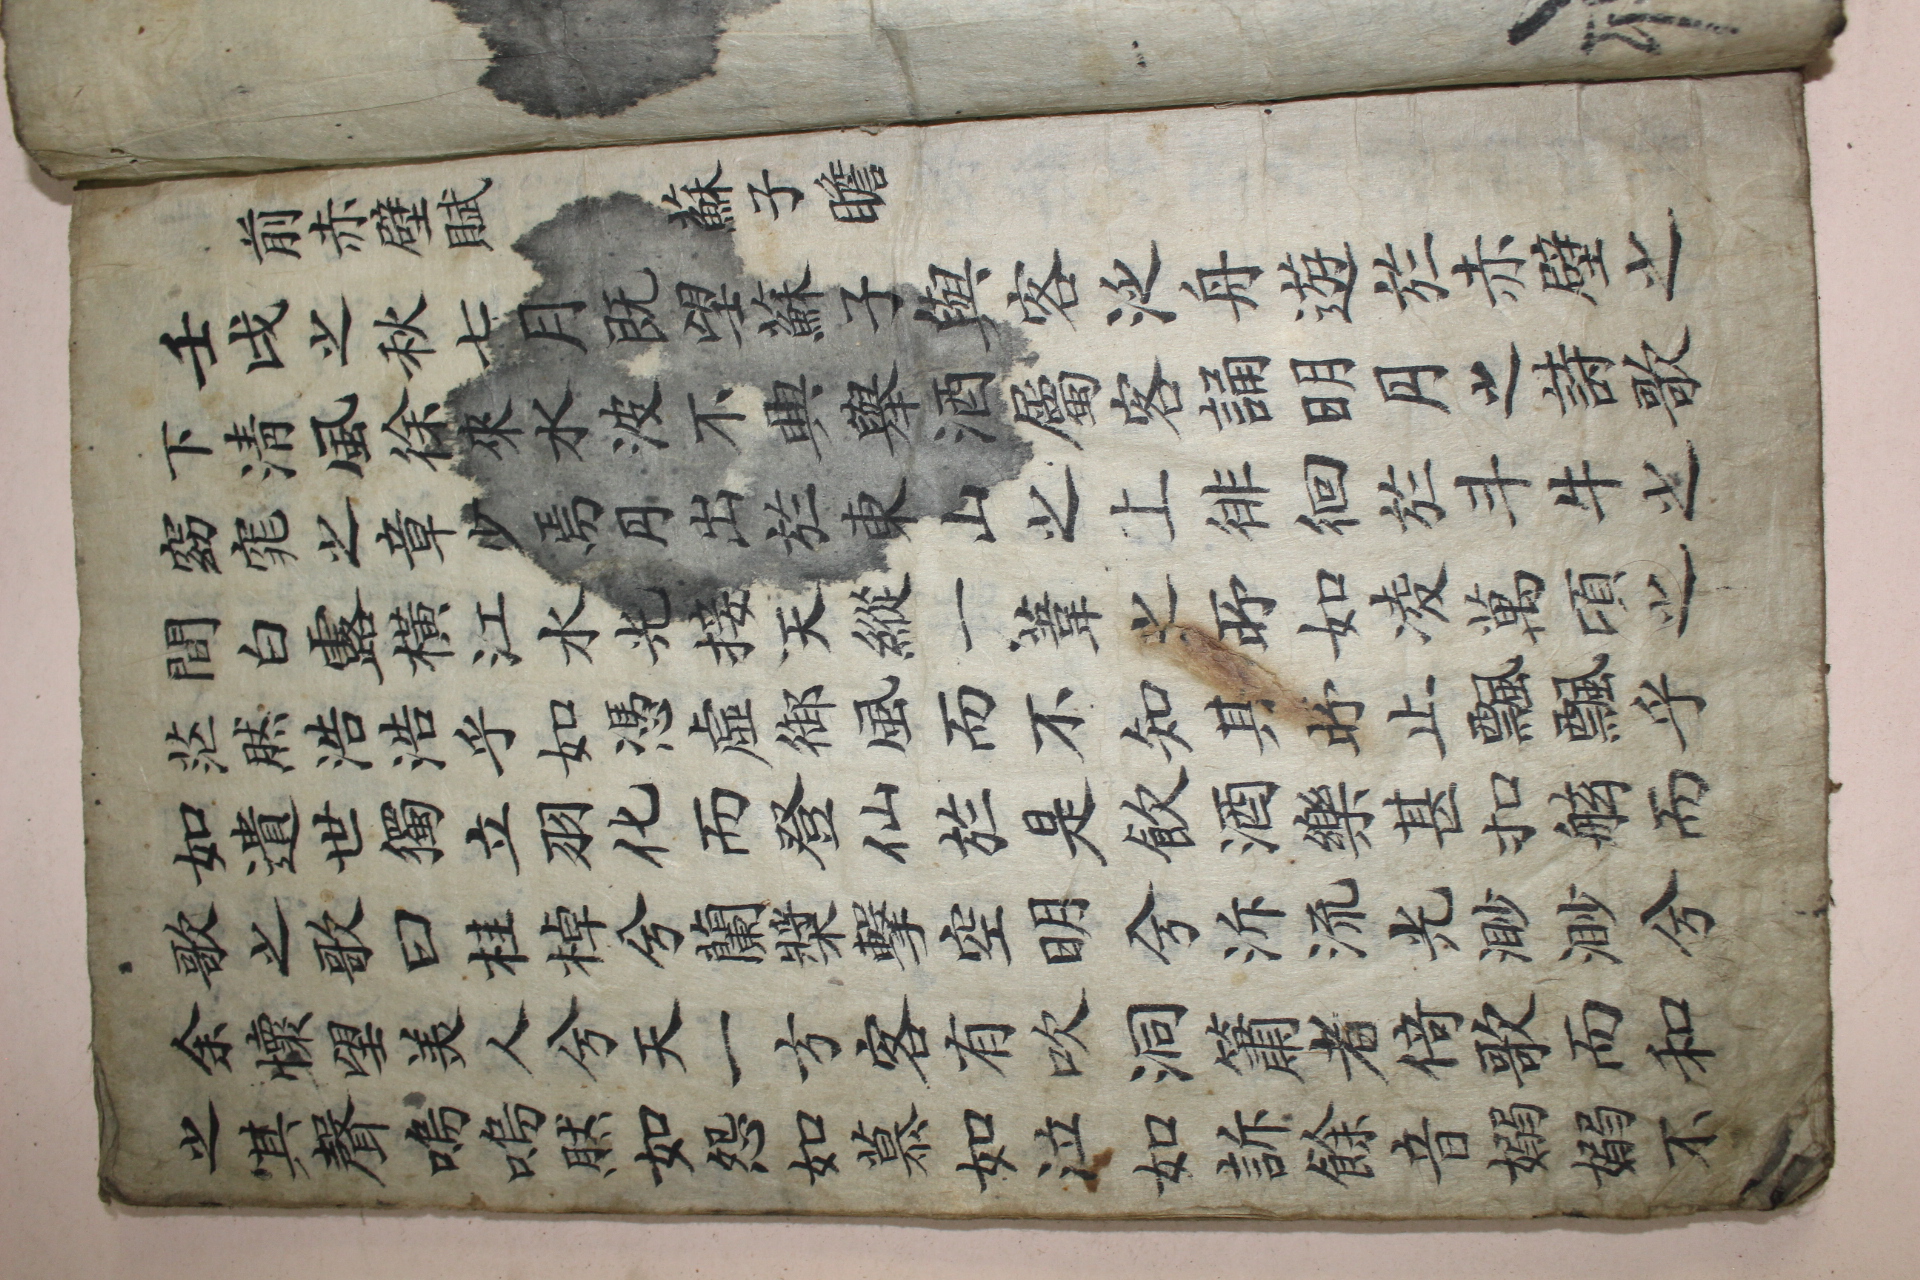 前赤壁賦 蘇子瞻
壬戌之秋七月既望蘇子與客泛舟遊於赤壁之
下清風徐來水波不興擧酒屬客誦明月之詩歌
窈窕之章少焉月出於東山之上徘徊於斗牛之
間白露橫江水光接天縱一葦之所如凌萬頃之
茫然浩浩乎如憑虛御風而不知其所止飄飄乎
如遺世獨立羽化而登仙於是飮酒樂甚扣舷而
歌之歌曰桂棹兮蘭槳擊空明兮泝流光渺渺兮
余懷望美人兮天一方客有吹洞簫者倚歌而和
之其聲嗚嗚然如怨如慕如泣如訴餘音嫋嫋不